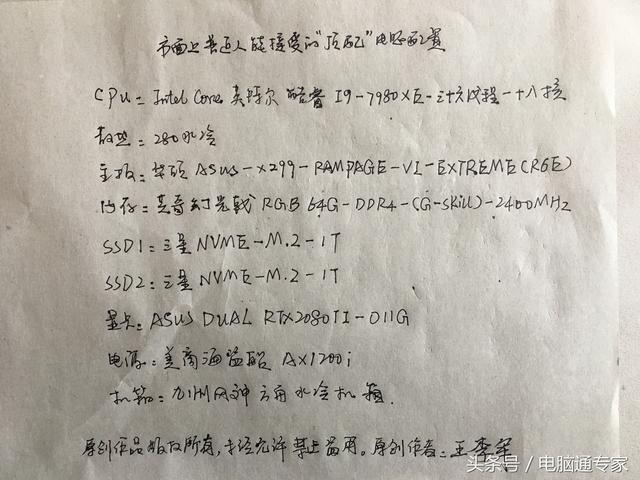 市面上普通人能接受的"顶配"电脑配置
CPU=Intel Core 英特尔 酷睿 I9-7980XE-三十六线程-十八核
散热=280水冷
主板:华硕 ASUS-X299-RAMPAGE-VI-EXTREME(R6E)
内存:芝奇幻光戟 RGB 64G-DDR4-(G-Skill)-2400MHz
SSD1=三星NVME-M.2-1T
SSD2=三星NVME-M.2-1T
显卡:ASUS DUAL RTX2080TI-O11G
电源:美商海盗船 AX1200i
机箱: 水冷机箱.
原创作品版权所有,未经允许禁止盗用。原创作者:王李军
头条号/电脑通专家